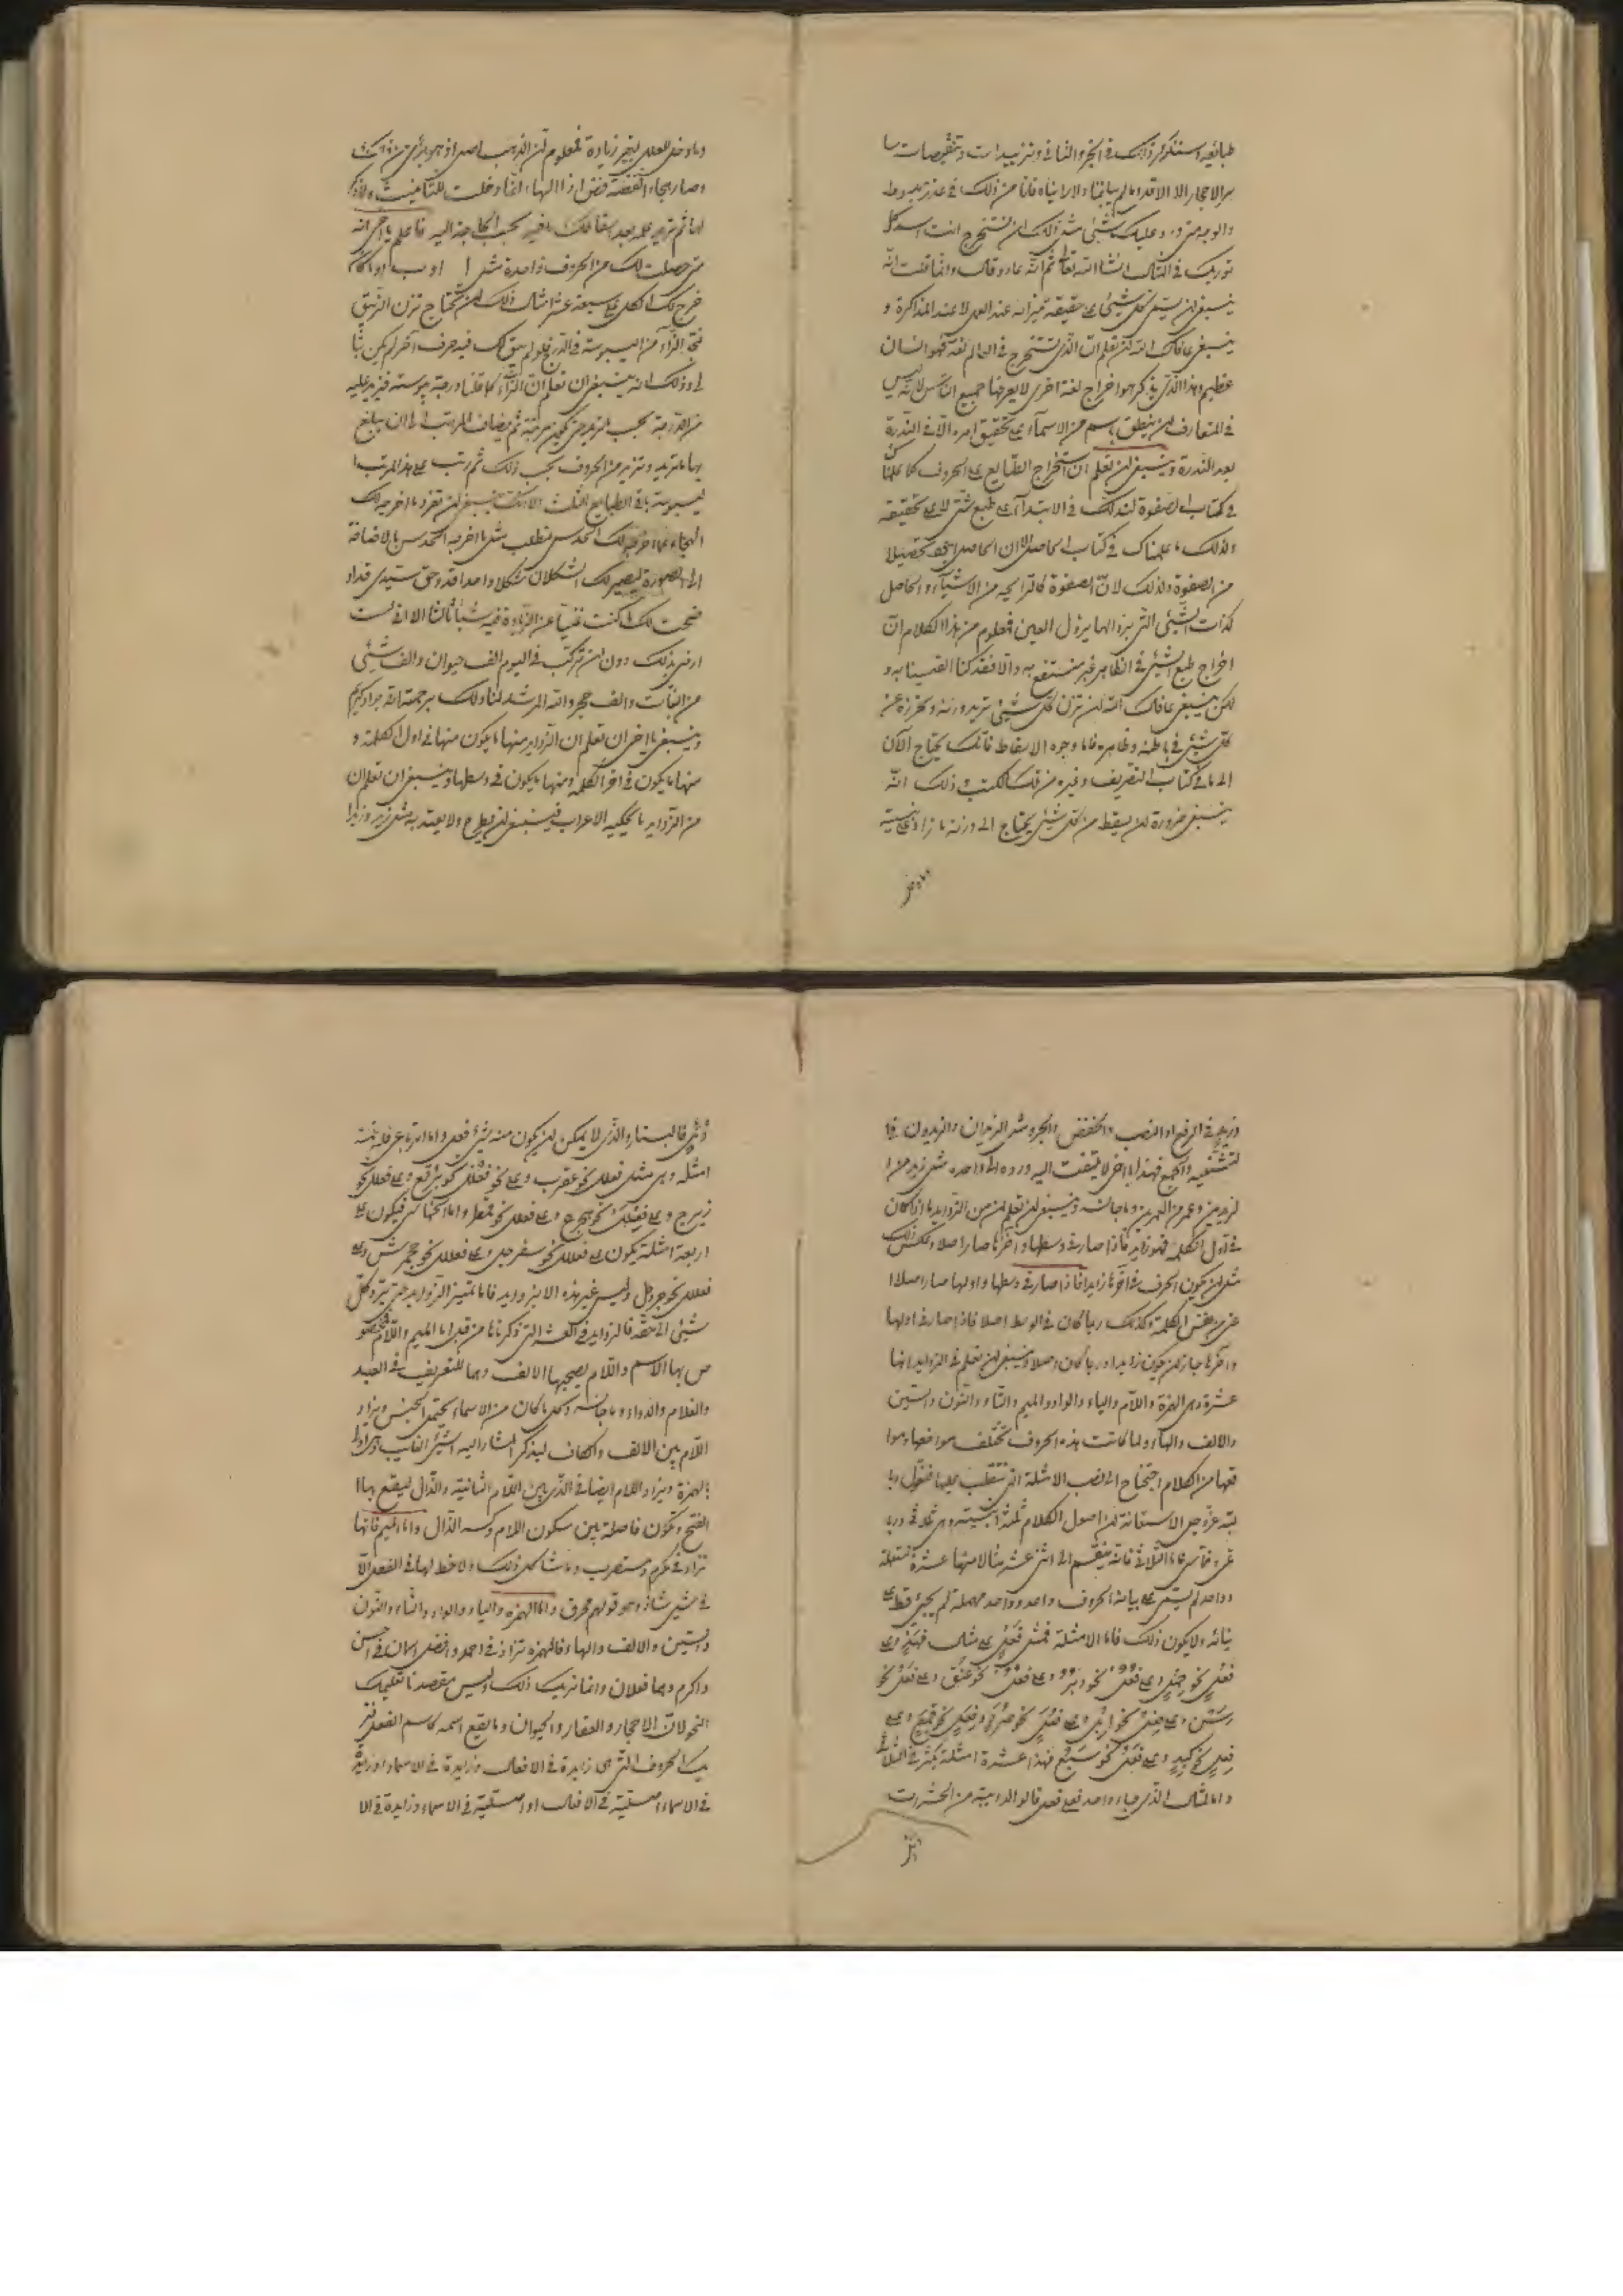 طبائعه وسنذكر ذلك في الجزء الثاني وتزييدات وتنقيصات
من الاحجار الا الاقدام لم يبلغنا ولا رايناه فانا من ذلك في عذر مبسوط
والوجه من وعليك بشيء مثل ذلك ان تستخرج انت
نوريك في المثال ان شاء الله تعالى ثم انه عاد وقال وانما قلت انه
ينبغي ان يبقى كل شيء على حقيقة ميزانه عند العمل لا عند المذاكرة و
ينبغي عافاك الله ان تعلم ان الذي يستخرج في العالم لغة فهو انسان
عظيم وهذا الذي نذكر هو اخراج لغة اخرى لا يعرفها جميع الناس لانه ليس
في المتعارف ان ينطق باسم من الاسماء على تحقيق امره الا في الندرة
بعد الندرة وينبغي ان تعلم ان استخراج الطبايع على الحروف كما علمناك
في كتاب الصفوة لندلك في الابتداء على طبع شيء لا على تحقيقه
وكذلك ما علمناك في كتاب الحاصل الا ان الحاصل اخف تحصيلا
من الصفوة وذلك لان الصفوة كالرايحة من الاشياء والحاصل
كذات الشيء التي بزوالها يزول العين فمعلوم من هذا الكلام ان
اخراج طبع الشيء في الظاهر غير منتفع به والا فقد كنا القينا به و
لكن ينبغي عافاك الله ان تزن كل شيء تريد وزنه وتحرزه عن
كل شيء في باطنه وظاهره فاما وجوه الاسقاط فانك تحتاج الآن
الى ما في كتاب التصريف وغيره من تلك الكتب وذلك انه
ينبغي ضرورة ان يسقط من كل شيء يحتاج الى وزنه ما زاد على بنيته
وما دخل
وما دخل للعلل لغير زيادة فمعلوم ان الذهب اصل اذ هو برئ من
وصار هجاء الفضة فض اذ الهاء انما دخلت للتأنيث
لها ثم تزيد عليه بعد اسقاطك ما فيه بحسب الحاجة اليه فاعلم يا اخي انه
متى حصلت لك من الحروف واحدة مثل ا او ب او
خرج لك الكل على سبعة عشر مثال ذلك ان تحتاج تزن الزيبق
فتجد الزاء من اليبوسة في الدرج فلو لم يبق لك فيه حرف آخر لم يكن بنا
الى وذلك انه ينبغي ان تعلم ان الزاء كما قلنا درجة يبوسة فيزيد عليه
من الدرجة بحسب المزيد حتى تكون مرتبة ثم يضاف المراتب الى ان يبلغ
بها ما تريد وتزيد من الحروف بحسب ذلك ثم رتب على هذا المرتب ا
ليبوسة باقي الطبايع الثلث الا انك ينبغي ان تفرد ما اخرجه لك
الهجاء مما اخرجه لك الحدس فتطلب مثل ما اخرجه الحدس بالاضافة
الى الصورة ليصير لك الشكلان شكلا واحدا فقد وحق سيدي قد او
ضحت لك ان كنت غنيا عن الزيادة فيه شيئا ثالثا الا اني لست
ارضى بذلك دون ان تركب في اليوم الف حيوان والف شيء
من النبات والف حجر والله المرشد لنا ولك برحمته انه جواد كريم
وينبغي يا اخي ان تعلم ان الزوايد منها ما يكون منها في اول الكلمة و
منها ما يكون في آخر الكلمة ومنها ما يكون في وسطها وينبغي ان تعلم ان
من الزوايد ما يحكيه الاعراب فينبغي ان يطرح ولا يعتد به مثل زيد وزيدا
وزيد في الرفع او النصب والخفض والجر ومثل الزيدان والزيدون في ا
لتثنية والجمع فهذا يا اخي لا يلتفت اليه ورده الى واحده مثل زيد من ا
لزيدين وعمر من العمرين وما جانسه وينبغي ان تعلم ان من الزوايد ما اذا كان
في اول الكلمة فهو زايد فاذا صار في وسطها او آخرها صار اصلا وعكس ذلك
مثل ان يكون الحرف في آخرها زايدا فاذا صار في وسطها واولها صار اصلا ا
عني بنفس الكلمة وكذلك ربما كان في الوسط اصلا فاذا صار في اولها
وآخرها جاز ان يكون زايدا وربما كان اصلا وينبغي ان تعلم في الزوايد انها
عشرة وهي الهمزة واللام والياء والواو والميم والتاء والنون والسين
والالف والهاء ولما كانت هذه الحروف تختلف مواضعها ومواقعها
قعها من الكلام احتجناج الى نصب الامثلة التي تنقلب عليها فنقول وبا
لله عز وجل الاستعانة ان اصول الكلام ثلثة ابنية وهي ثلاثي وربا
عي وخماسي فاما الثلاثي فانه ينقسم الى اثنى عشر مثالا منها عشرة مستعملة
وواحد لم يبنى على بيانه الحروف واحد وواحد مهملة لم يجئ قط على
بنائه ولا يكون ذلك فاما الامثلة فمثل فعل على مثال فهد وعلى
فعل نحو جمل وعلى فعل نحو دبر وعلى فعل نحو عنق وعلى فعل نحو
رسن وعلى فعل نحو ابل وعلى فعل نحو صرد وفعل نحو قمع وعلى
فعل نحو كبد وعلى فعل نحو سبع فهذا عشرة امثلة يكثر في الثلاثي
واما المثال الذي جاء واحد فعلى فعل قالوا لدابة من الحشرات
دئل
دئل فالبستار والذي لا يمكن ان يكون منه شيء فعل واما الرباعي فله خمسة
امثلة وهي مثل فعلل نحو عقرب وعلى نحو فعلل نحو برقع وعلى فعلل نحو
زبرج وعلى فعلل نحو هجرع وعلى فعلل نحو قمطر واما الخماسي فيكون على
اربعة امثلة يكون على فعلل نحو سفرجل وعلى فعلل نحو جحمرش وعلى
فعلل نحو جردحل وليس غير هذه الابنية زوايد فاما تمييز الزوايد حتى ترد كل
شيء الى حقه فالزوايد في العشرة التي ذكرناها من قبل اما الميم واللام فمخصو
ص بها الاسم واللام يصحبها الالف وهما للتعريف في العبد
والغلام والدواء وما جانسه وكل ما كان من الاسماء يحتمل الجنس ويزاد
اللام بين الالف والكاف ليذكر المشار اليه الشيء الغايب
بالهمزة ويزاد اللام ايضا في الذي بين اللام الثانية والذال ليقع بها ا
لفتح وتكون فاصلة بين سكون اللام وكسر الذال واما الميم فانها
تزاد في مكرم ومستضرب وما شاكل ذلك ولا خط لها في الفعل الا
في شيء شاذ وهو قولهم مخرق واما الهمزة والياء والواو والتاء والنون
والسين والالف والهاء فالهمزة تزاد في احمد وافضل اسمان في احسن
واكرم وهما فعلان وانما نريك ذلك وليس مقصدنا تعليمك
النحو لان الاحجار والعقار والحيوان وما يقع اسمه كاسم الفعل فنر
يك الحروف التي هي زايدة في الافعال وزايدة في الاسماء او زايدة
في الاسماء اصلية في الافعال او اصلية في الاسماء وزايدة في الا